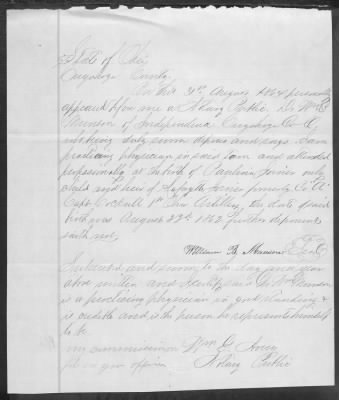 State of Ohio
Cuyahoga County
On this 31st August 1864 personally
appeared before me a Notary Public Dr Wm B
Munson of Independence Cuyahoga Co O
who being duly sworn deposes and says I am
practicing physician in said town and attended
professionally at the birth of Paulina Jones only
child and heir of Jones formerly Co "A"
Capt Cockerill 1st Ohio Artillery, the date of said
birth was August 22d 1862 further deponent
saith not,
William B Munson
Subscribed and sworn to the day and year
above written and I certify said Dr Wm Munson
is a practicing physician in good standing &
is credible and is the person he represents himself
to be
my commission Wm C
file in your office Notary Public